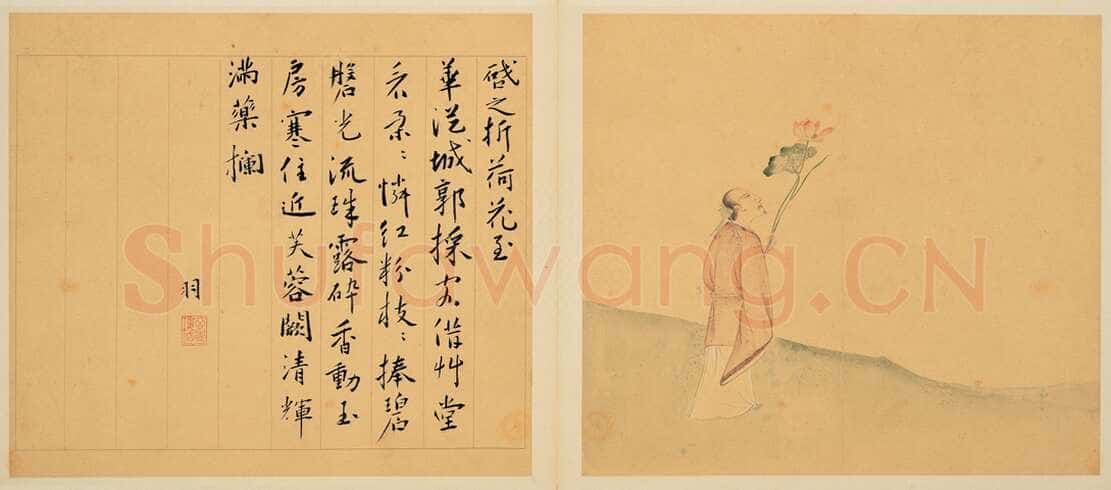 啓之折荷花至
華從城郭採客借艸堂
看朶〻憐紅粉枝〻捧碧
盤光流珠露碎香動玉
房寒住近芙蓉闕清輝
滿藥欄
羽
Shufawang.CN